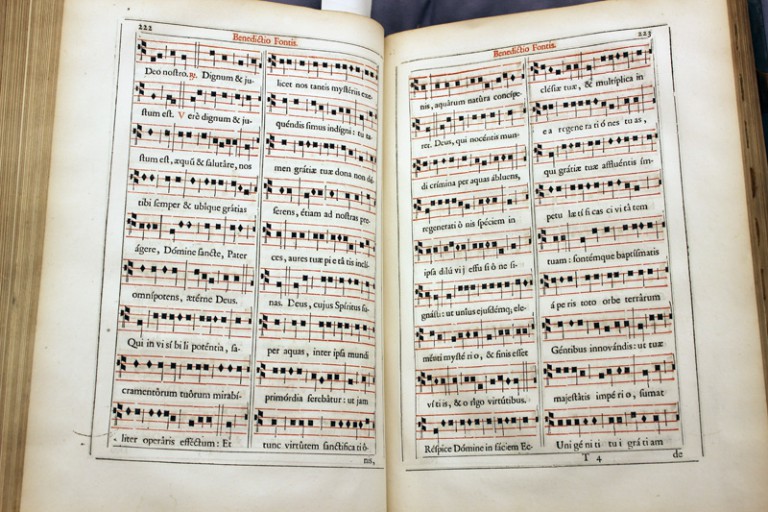 222
Benedictio Fontis.
Deo nostro. ℟. Dignum & ju-
stum est. Verè dignum & ju-
stum est, æquū & salutáre, nos
tibi semper & ubíque grátias
ágere, Dómine sancte, Pater
omnípotens, ætérne Deus.
Qui in vi sí bi li poténtia, sa-
cramentórum tuórum mirabí-
liter operáris efféctum: Et
licet nos tantis mystériis exe-
quéndis simus indígni: tu ta-
men grátiæ tuæ dona non dé-
serens, étiam ad nostras pre-
ces, aures tuæ pi e tá tis inclí-
na. Deus, cujus Spíritus su-
per aquas, inter ipsa mundi
primórdia ferebátur: ut jam
tunc virtútem sanctifica ti ó-
nis,
223
Benedictio Fontis.
nis, aquárum natúra concípe-
ret. Deus, qui nocéntis mun-
di crímina per aquas ábluens,
regenerati ó nis spéciem in
ipsa dilú vi j effu si ó ne si-
gnásti: ut uníus ejusdémq; ele-
ménti mysté ri o, & finis esset
ví ti is, & o rígo virtútibus.
Réspice Dómine in fáciem Ec-
clésiæ tuæ, & multíplica in
e a regene ra ti ó nes tu as,
qui grátiæ tuæ affluéntis ím-
petu læ tí fi cas ci vi tá tem
tuam: fontémque baptísmatis
á pe ris toto orbe terrárum
Géntibus innovándis: ut tuæ
majestátis impé ri o, sumat
Uni gé ni ti tu i grá ti am
T 4
de